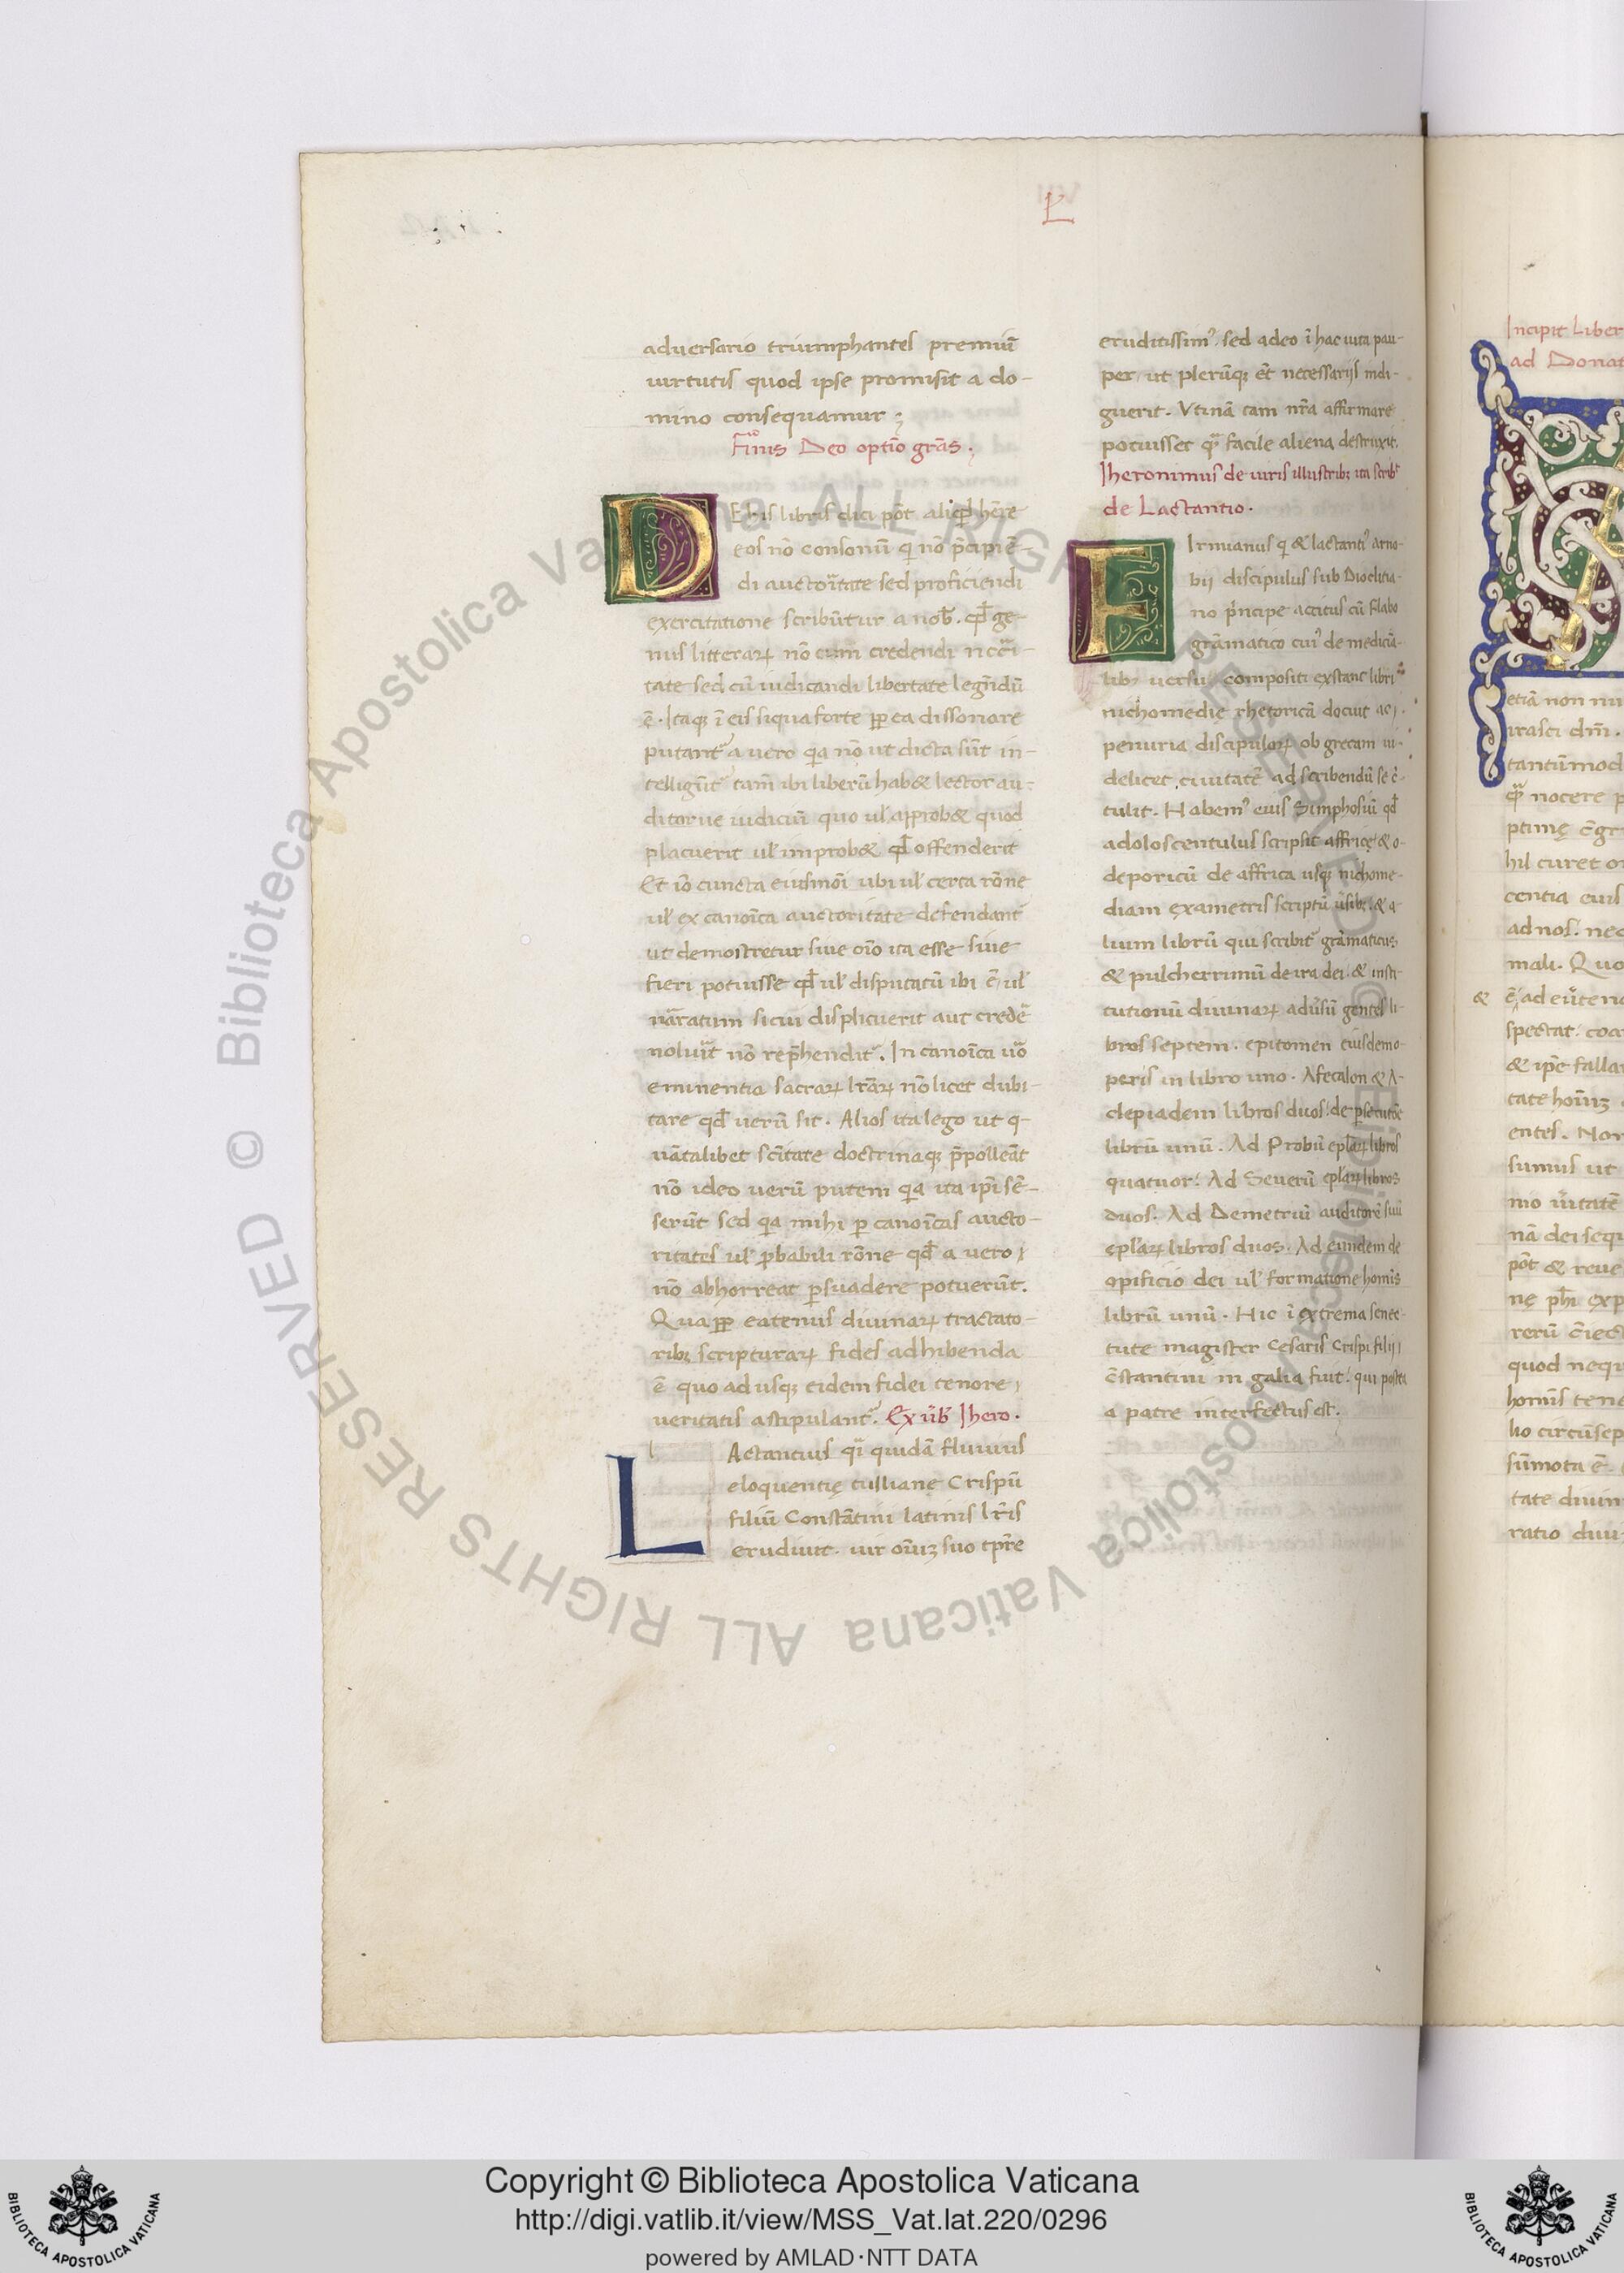 L
adversario triumphantes premiũ
virtutis quod ipse promisit a do-
mino consequamur ;
Finis Deo optĩo grãs.
D E his libris dici põt aliqd hẽre
eos nõ consonũ q nõ p̃cipiẽ-
di auctoritate sed proficiendi
exercitatione scribũtur a nob. qd ge-
nus litteraꝝ nõ cum credendi
tate sed cũ iudicandi libertate legẽdũ
ẽ. Itaqꝫ ĩ eis siqua forte ꝓp ea dissonare
putant a vero qa nõ ut dicta sũt in-
telligũt tam̃ ibi liberũ hab& lector au-
ditorve iudiciũ quo ul approb& quod
placuerit ul improb& qd offenderit
Et iõ cuncta eiusmõi ubi ul certa rõne
ul ex canoĩca auctoritate defendant
ut demostretur sive oĩo ita esse sive
fieri potuisse qd ul disputatũ ibi ẽ ul
narratum sicui displicuerit aut crede
noluit nõ rep̃hendit. In canoĩca ũo
eminentia sacraꝝ lrãꝝ nõ licet dubi-
tare qd verũ sit. Alios ita lego ut q-
vãtalibet scĩtate doctrinaqꝫ p̃polleãt
nõ ideo verũ putem qa ita ipĩ sẽ-
serũt sed qa mihi p canoĩcas aucto-
ritates ul p̃babili rõne qd a vero
nõ abhorreat p̃suadere potuerũt.
Quaꝓp eatenus divinaꝝ tractato-
ribꝫ scripturaꝝ fides adhibenda
ẽ quo ad usqꝫ eidem fidei tenore
veritatis astipulant. Ex ũb Ihero.
L Actantius qĩ quidã fluvius
eloquentię tulliane Crispũ
filiũ Constãtini latinis lr̃is
erudivit. vir oĩuꝫ suo tp̃re
eruditissim⁹ sed adeo ĩ hac vita pau-
per ut plerũqꝫ ẽt necessarijs indi-
guerit. Utinã tam nr̃a affirmare
potuisset qª facile aliena destruxit.
Iheronimus de viris illustribꝫ ita scribᵗ
de Lactantio.
F Irmianus q & lactanti⁹ arno-
bij discipulus sub Dioclitia-
no p̃ncipe accitus cũ flabo
grãmatico cui⁹ de medicĩa-
libꝫ versu compositi exstant libri
nichomedię rhetoricã docuit ac
penuria discipuloꝝ ob grecam vi-
delicet civitatẽ ad scribendũ se c̃-
tulit. Habem⁹ eius Simphosiũ qd
adoloscentulus scripsit affricę & o-
deporicũ de affrica usqꝫ nichome-
diam exametris scriptũ ṽsibꝫ & a-
lium librũ qui scribit grãmaticus
& pulcherrimũ de ira dei & insti-
tutionũ divinaꝝ adṽsũ gentes li-
bros septem. epitomen eiusdem o-
peris in libro uno. Afecalon & A-
clepiadem libros duos. de p̃secutõe
librũ unũ. Ad Probũ eplãꝝ libros
quatuor. Ad Severũ eplãꝝ libros
duos. Ad Demetriũ auditorẽ suũ
eplãꝝ libros duos. Ad eundem de
opificio dei ul formatione homĩs
librũ unũ. Hic ĩ extrema senec-
tute magister Cesaris Crispi filij
c̃stantini in galia fuit. qui postea
a patre interfectus est.
Incipit Liber
ad Donat
etiã non nu
irasci dm̃.
tantũmod
qª nocere p
ptimę c̃gr
hil curet o
centia eius
ad nos. nec
mali. Quo
spectat. coa
& ip̃e falla
tate
entes. Non
sumus ut
mo ṽitatẽ
nã dei sequ
põt & reve
nę phĩ exp
rerũ c̃iect
quod nequ
homĩs tene
lio circũsep
sũmota ẽ.
tate divin
ratio divi
Copyright © Biblioteca Apostolica Vaticana
http://digi.vatlib.it/view/MSS_Vat.lat.220/0296
powered by AMLAD·NTT DATA
© Biblioteca Apostolica Vaticana ALL RIGHTS RESERVED
© Biblioteca Apostolica Vaticana ALL RIGHTS RESERVED
BIBLIOTECA APOSTOLICA VATICANA
BIBLIOTECA APOSTOLICA VATICANA